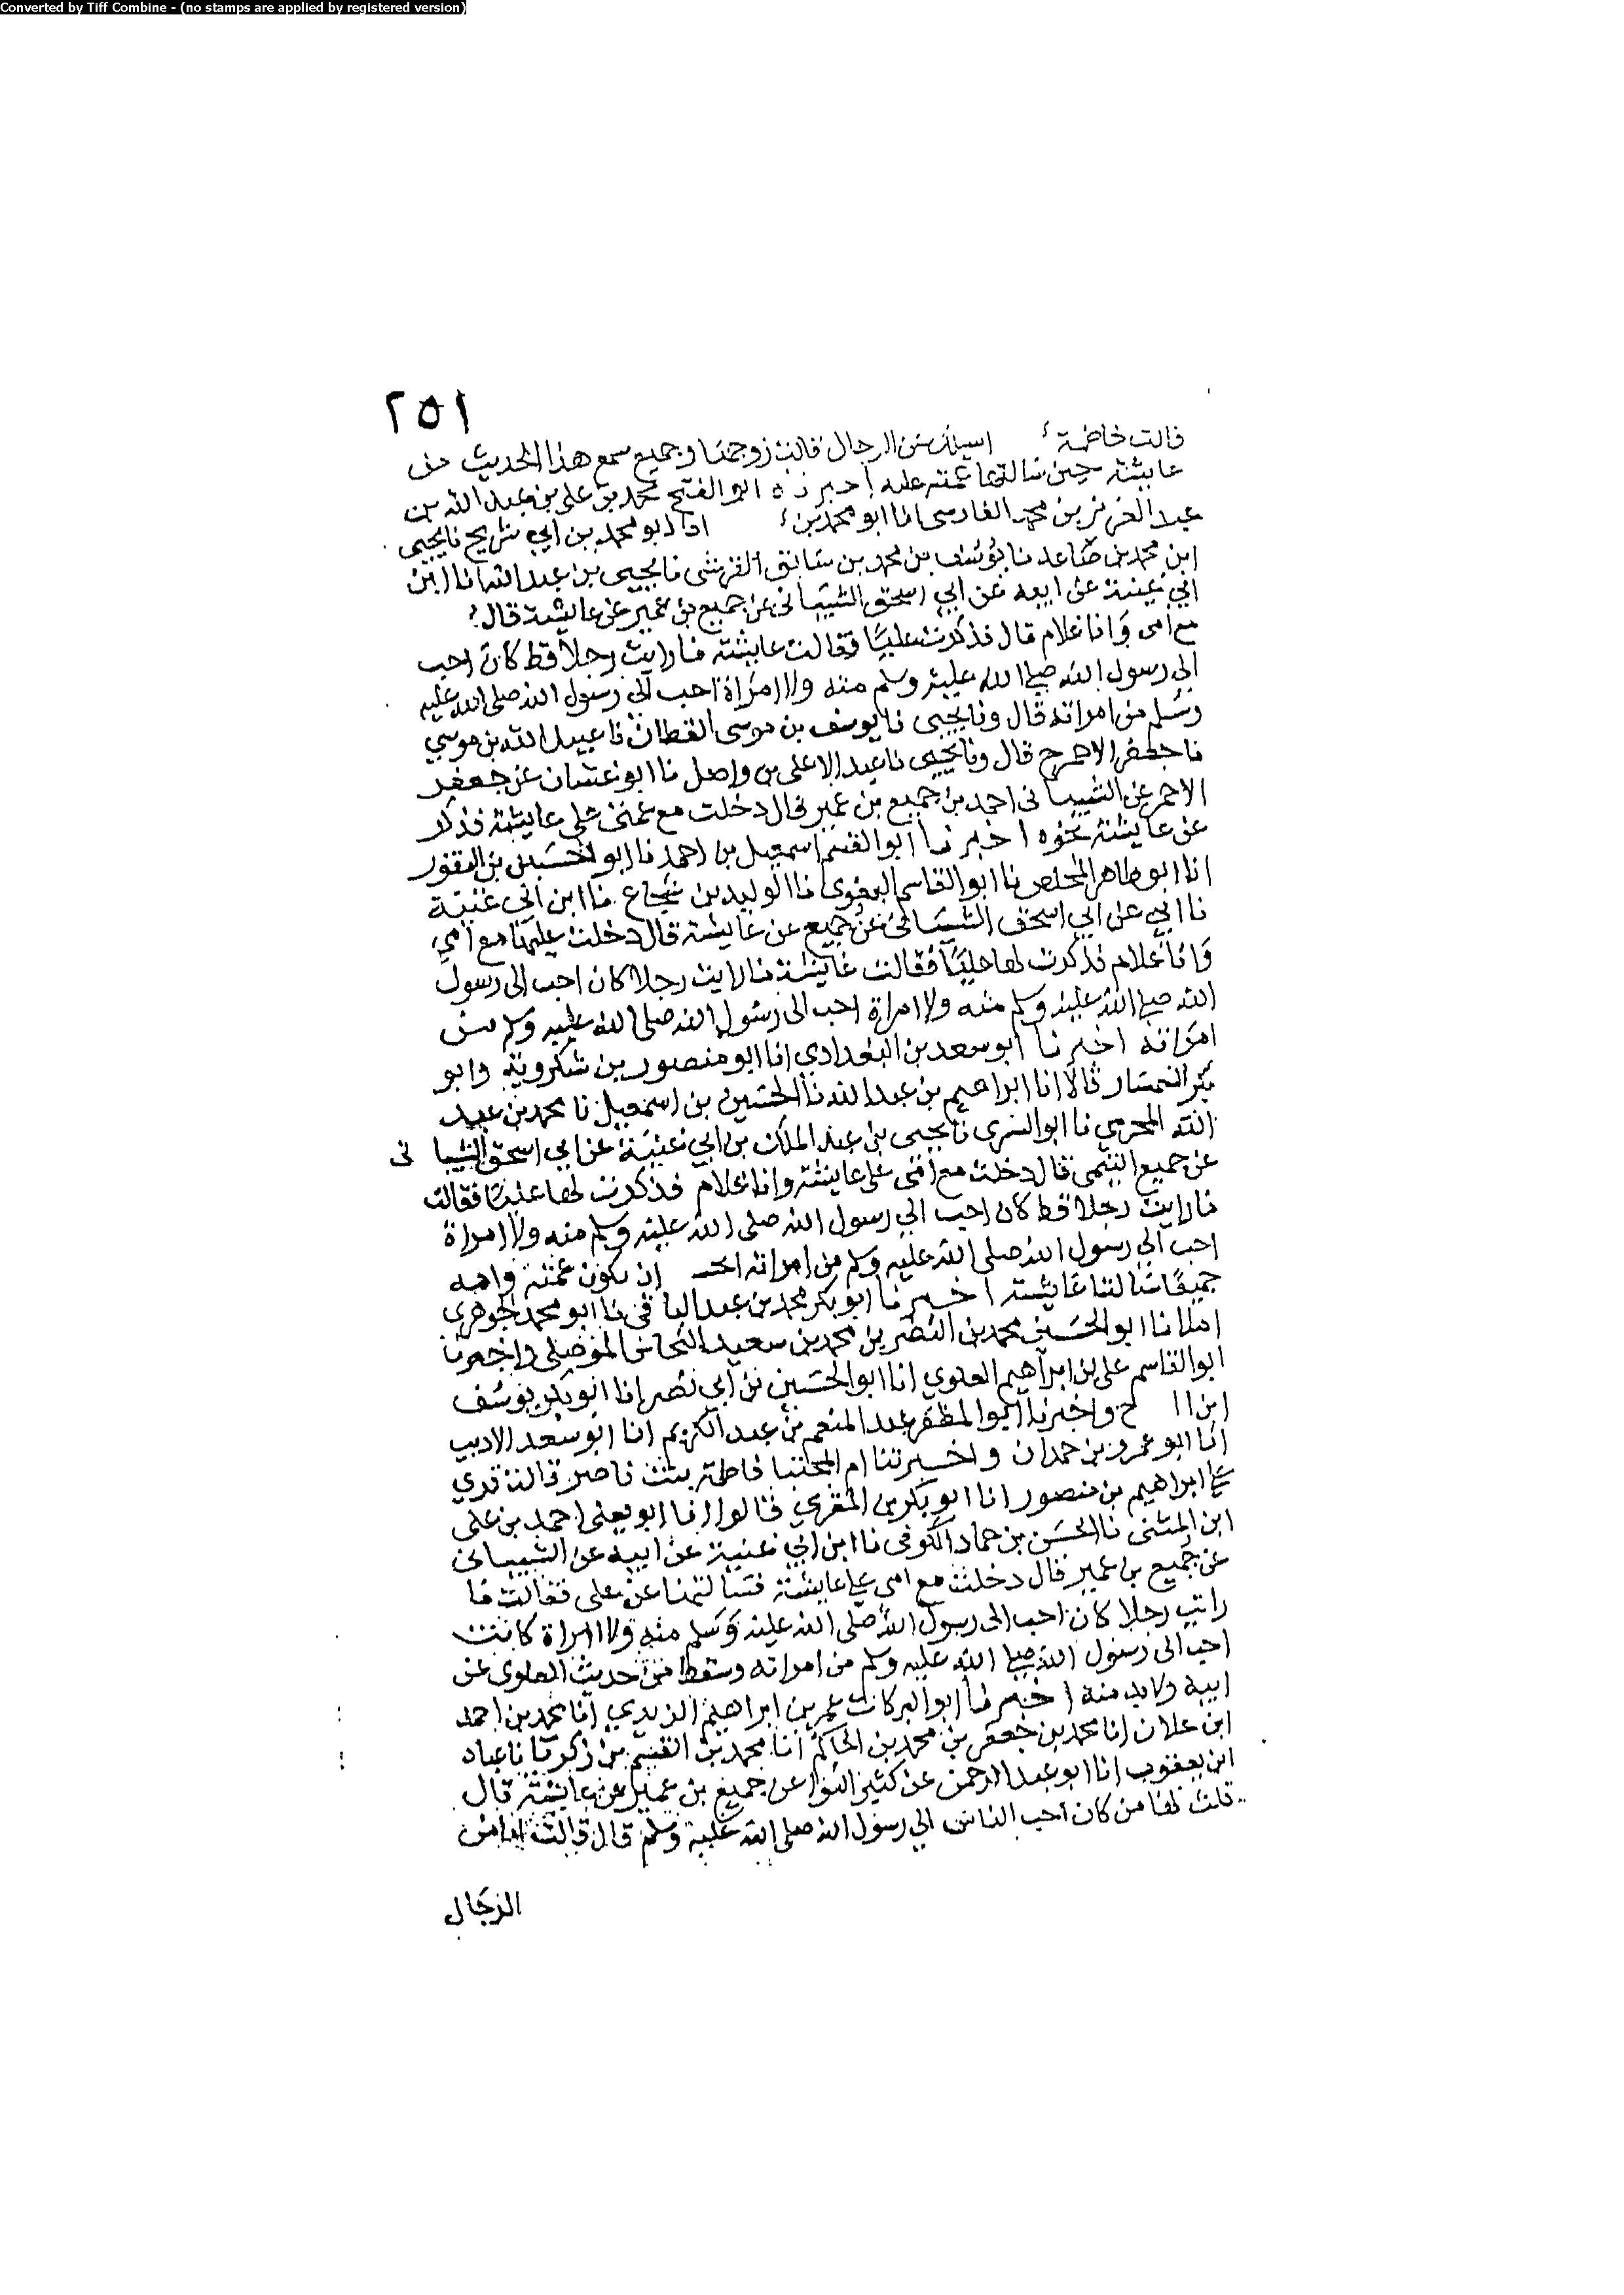 Converted by Tiff Combine - (no stamps are applied by registered version)
٢٥١
قالت فاطمة الرجال قالت زوجها وجميع سمع هذا الحديث من
عايشة حين سالتها عمته عليه اخبرناه ابو الفتح محمد بن على بن عبد الله بن
عبد العزيز بن محمد الفارسى انا ابو محمد بن انا ابو محمد بن ابي شريح نا يحيى
ابن محمد بن صاعد نا يوسف بن محمد بن سابق القرشى نا يحيى بن عبد الملك نا ابن
ابي غنية عن ابيه عن ابي اسحق الشيبانى عن جميع بن عمير عن عايشة قال
مع امى وانا غلام قال فذكرت عليا فقالت عايشة ما رايت رجلا قط كان احب
الى رسول الله صلى الله عليه وسلم منه ولا امراة احب الى رسول الله صلى الله عليه
وسلم من امراته قال ونا يحيى نا يوسف بن موسى القطان نا عبيد الله بن موسي
نا جعفر الاحمر ح قال ونا يحيى نا عبد الاعلى بن واصل نا ابو غسان عن جعفر
الاحمر عن الشيبانى احمد بن جميع بن عمير قال دخلت مع عمتى على عايشة فذكر
عن عايشة نحوه اخبرنا ابو القسم اسمعيل بن احمد نا ابو الحسين بن النقور
انا ابو طاهر المخلص نا ابو القاسم البغوى نا الوليد بن شجاع نا ابن ابي غنية
نا ابي عن ابي اسحق الشيبانى عن جميع عن عايشة قال دخلت عليها مع امي
وانا غلام فذكرت لها عليا فقالت عايشة ما رايت رجلا كان احب الى رسول
الله صلى الله عليه وسلم منه ولا امراة احب الى رسول الله صلى الله عليه وسلم من
امراته اخبرنا ابو سعد بن البغدادي انا ابو منصور بن شكروية وابو
بكر السمسار قالا انا ابراهيم بن عبد الله نا الحسين بن اسمعيل نا محمد بن عبيد
الله المخرمي نا ابو السرى نا يحيى بن عبد الملك بن ابي غنية عن ابي اسحق الشيبانى
عن جميع التيمى قال دخلت مع امى على عايشة وانا غلام فذكرت لها عليا فقالت
ما رايت رجلا قط كان احب الي رسول الله صلى الله عليه وسلم منه ولا امراة
احب الي رسول الله صلى الله عليه وسلم من امراته ان يكون عمته وامه
جميعا سالتا عايشة اخبرنا ابو بكر محمد بن عبد الباقى نا ابو محمد الجوهرى
املا نا ابو الحسين محمد بن النضر بن محمد بن سعيد النخاس الموصلى واخبرنا
ابو القاسم على بن ابراهيم العلوي انا ابو الحسين بن ابي نصر انا ابو بكر يوسف
ابن ح واخبرنا ابو المظفر عبد المنعم بن عبد الكريم انا ابو سعد الاديب
انا ابو عمرو بن حمدان واخبرتنا ام المجتبا فاطمة بنت ناصر قالت قري
على ابراهيم بن منصور انا ابو بكر بن المقري قالوا انا ابو يعلى احمد بن على
ابن المثنى نا الحسن بن حماد الكوفى نا ابن ابي غنية عن ابيه عن الشيبانى
عن جميع بن عمير قال دخلت مع امى على عايشة فسالتها عن على فقالت ما
رايت رجلا كان احب الى رسول الله صلى الله عليه وسلم منه ولا امراة كانت
احب الى رسول الله صلى الله عليه وسلم من امراته وسقط من حديث العلوى عن
ابيه ولابد منه اخبرنا ابو البركات عمر بن ابراهيم الزيدي انا محمد بن احمد
ابن علان انا محمد بن جعفر بن محمد بن الحاكم انا محمد بن القسم بن زكريا نا عباد
ابن يعقوب انا ابو عبد الرحمن عن كثير النوا عن جميع بن عمير عن عايشة قال
قلت لها من كان احب الناس الي رسول الله صلى الله عليه وسلم قال قالت اما من
الرجال